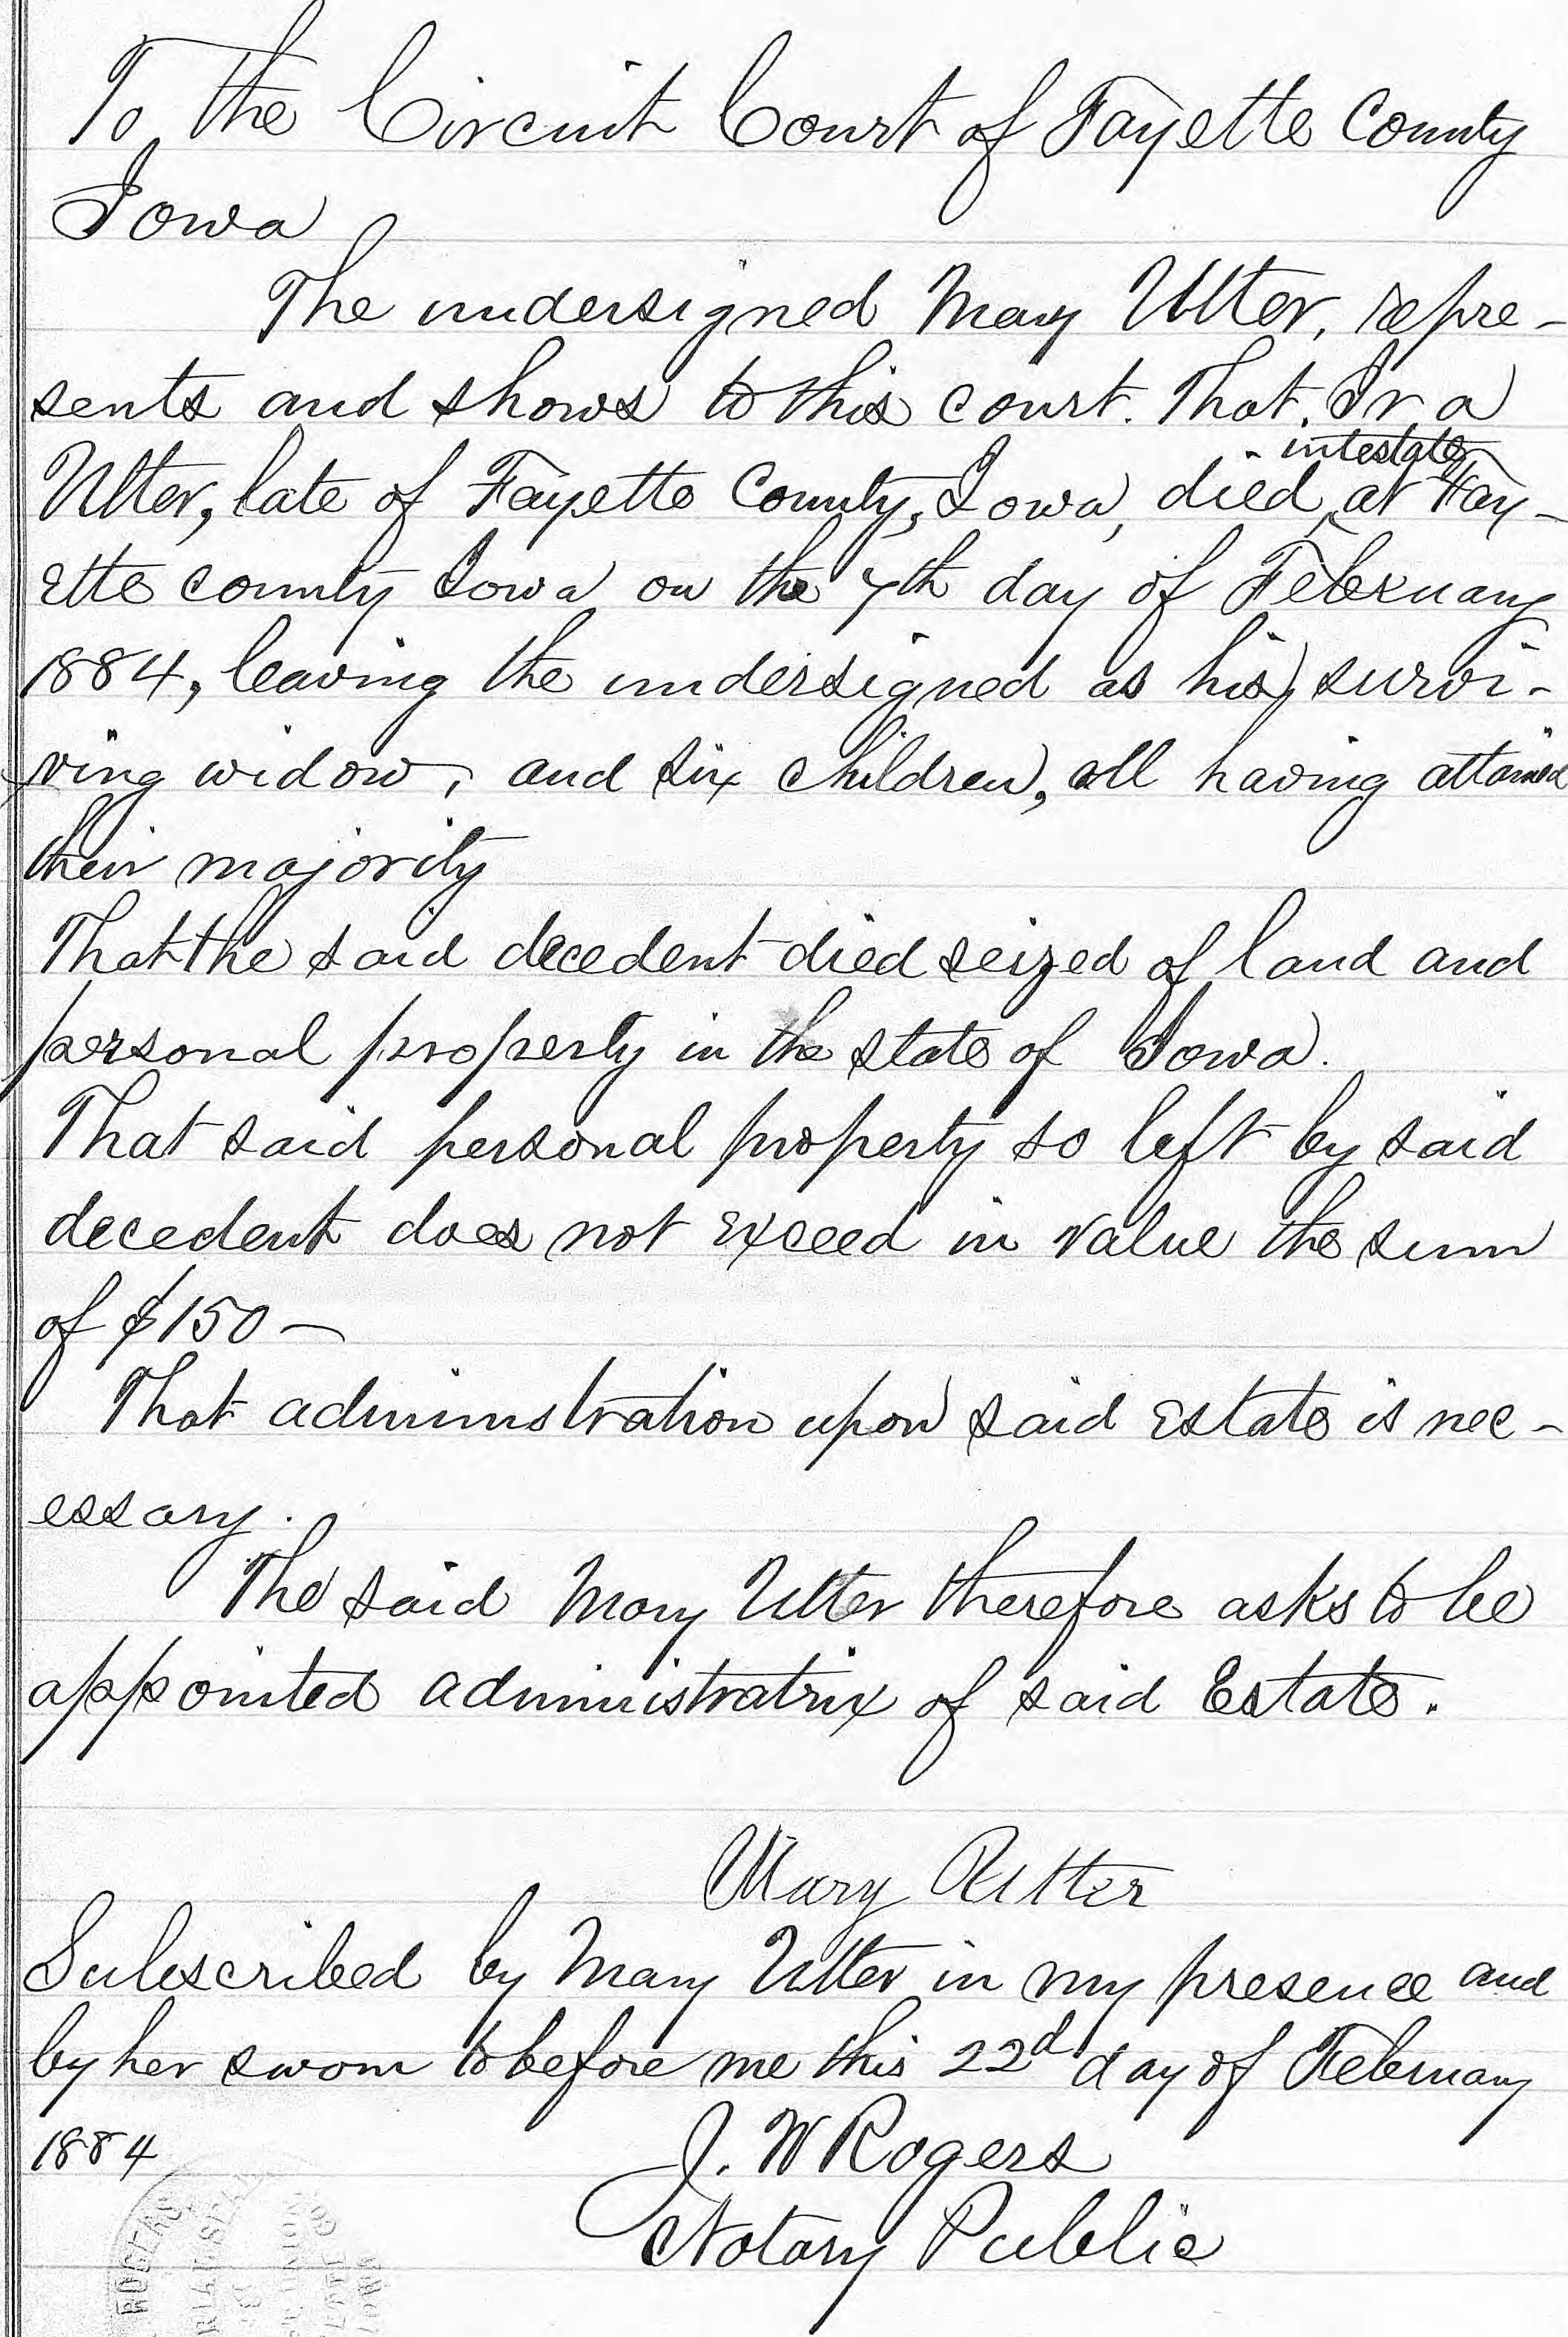 To the Circuit Court of Fayette County
Iowa
The undersigned Mary Utter, repre-
sents and shows to this court. That. Ira
intestate
Utter, late of Fayette County, Iowa, died, at Fay-
ette county Iowa on the 7th day of February
1884, leaving the undersigned as his survi-
ving widow, and six children, all having attained
their majority
That the said decedent died seized of land and
personal property in the state of Iowa.
That said personal property so left by said
decedent does not exceed in value the sum
of $150 —
That administration upon said Estate is nec-
essary.
The said Mary Utter therefore asks to be
appointed administratrix of said Estate.
Mary Utter
Subscribed by Mary Utter in my presence and
by her sworn to before me this 22d day of February
1884
J. W Rogers
Notary Public